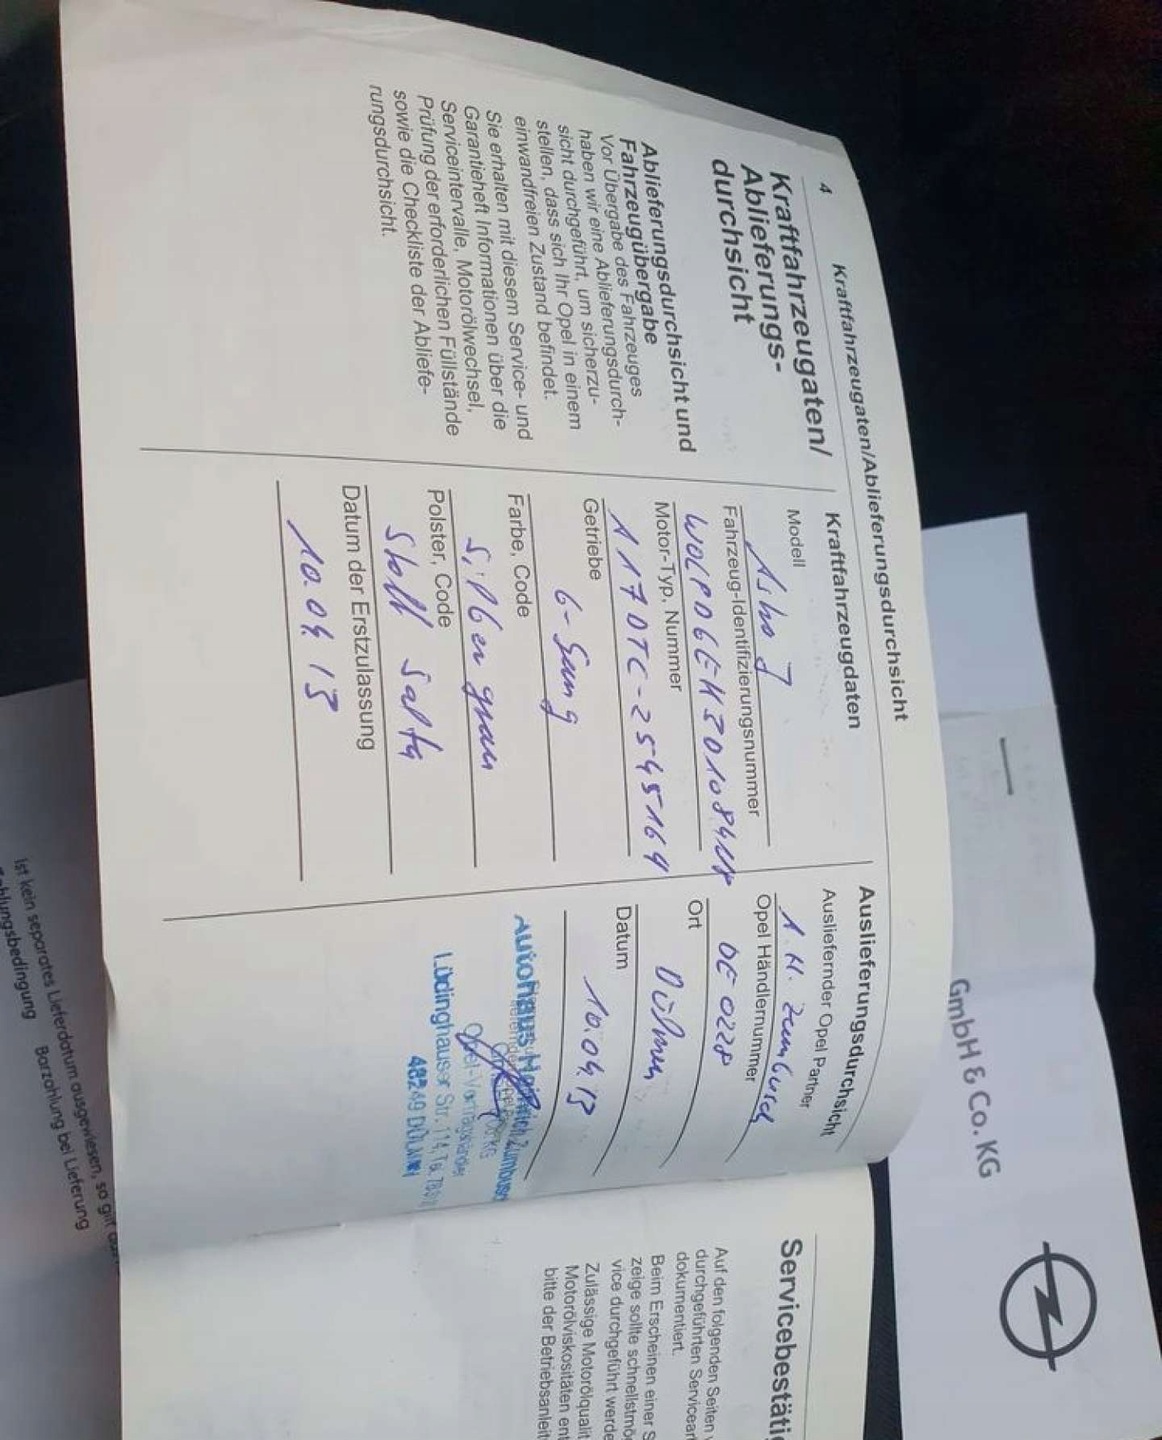 4
Kraftfahrzeugaten/Ablieferungsdurchsicht
Kraftfahrzeugaten/
Ablieferungs-
durchsicht
Ablieferungsdurchsicht und
Fahrzeugübergabe
Vor Übergabe des Fahrzeuges
haben wir eine Ablieferungsdurch-
sicht durchgeführt, um sicherzu-
stellen, dass sich Ihr Opel in einem
einwandfreien Zustand befindet.
Sie erhalten mit diesem Service- und
Garantieheft Informationen über die
Serviceintervalle, Motorölwechsel,
Prüfung der erforderlichen Füllstände
sowie die Checkliste der Abliefe-
rungsdurchsicht.
Kraftfahrzeugdaten
Modell
Astra J
Fahrzeug-Identifizierungsnummer
Motor-Typ, Nummer
A17DTC-2545164
Getriebe
6-Gang
Farbe, Code
Silbergrau
Polster, Code
Stoff Salta
Datum der Erstzulassung
10.04.13
Auslieferungsdurchsicht
Ausliefernder Opel Partner
A.H. Zumbusch
Opel Händlernummer
DE 0228
Ort
Dülmen
Datum
10.04.13
Autohaus Heinrich Zumbusch
Lüdinghauser Str. 114, Te.
48249 DÜLMEN
Servicebestäti
Auf den folgenden Seiten
durchgeführten Servicear
dokumentiert.
Beim Erscheinen einer S
zeige sollte schnellstmö
vice durchgeführt werde
Zulässige Motorölqualit
Motorölviskositäten ent
bitte der Betriebsanleit
GmbH & Co. KG
ist kein separates Lieferdatum ausgewiesen, so gilt
Zahlungsbedingung Barzahlung bei Lieferung